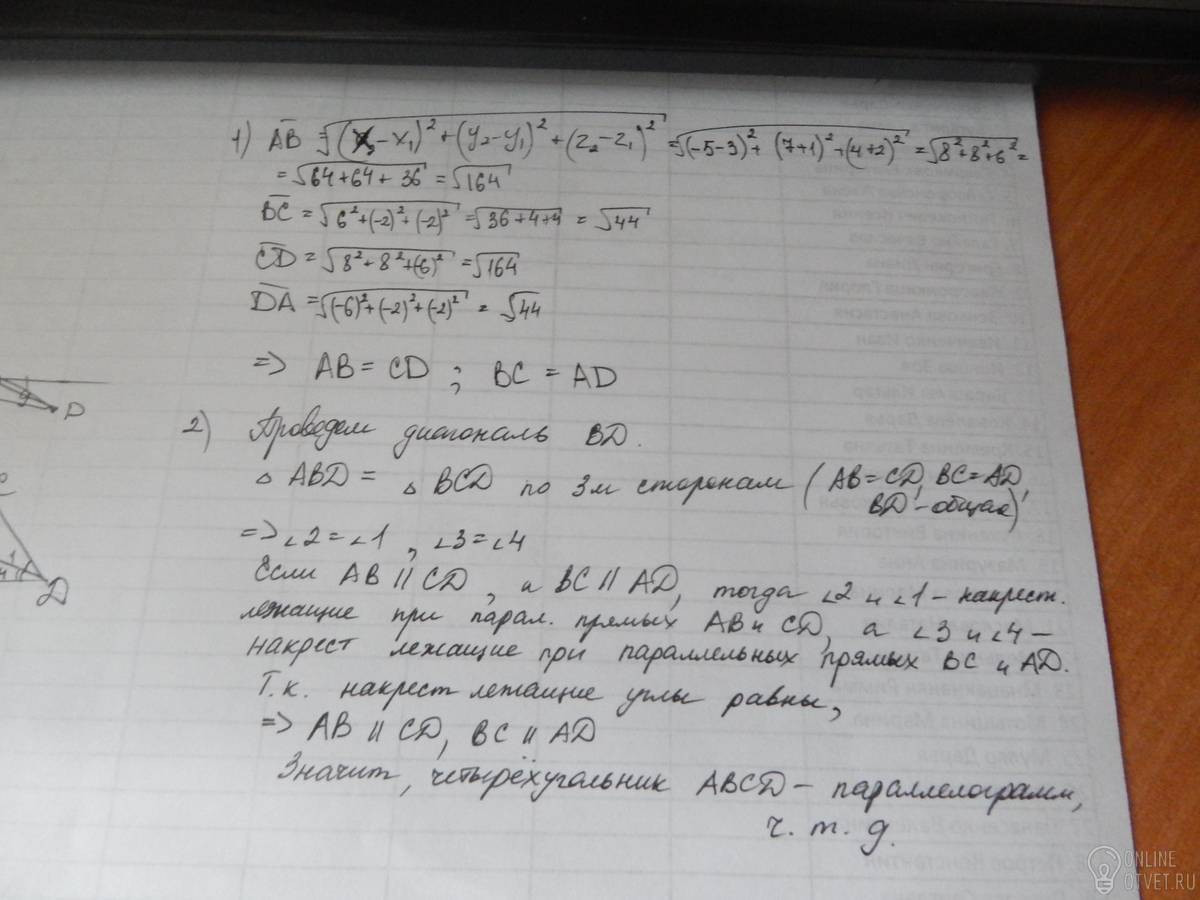 1) AB = √(x₂-x₁)² + (y₂-y₁)² + (z₂-z₁)² = √(-5-3)² + (7+1)² + (4+2)² = √8²+8²+6² =
= √64+64+36 = √164
BC = √6²+(-2)²+(-2)² = √36+4+4 = √44
CD = √8²+8²+(6)² = √164
DA = √(-6)²+(-2)²+(-2)² = √44
=> AB = CD ; BC = AD
D
2) Проведем диагональ BD.
△ ABD = △ BCD по 3м сторонам (AB=CD, BC=AD,
BD - общая)
=> ∠2=∠1 , ∠3=∠4
Если AB || CD, а BC || AD, тогда ∠2 и ∠1 - накрест.
1
D
лежащие при парал. прямых AB и CD, а ∠3 и ∠4 -
накрест лежащие при параллельных прямых BC и AD.
Т.к. накрест лежащие углы равны,
=> AB || CD, BC || AD
Значит, четырёхугольник ABCD - параллелограмм,
ч. т. д.
ONLINE
OTVET.RU